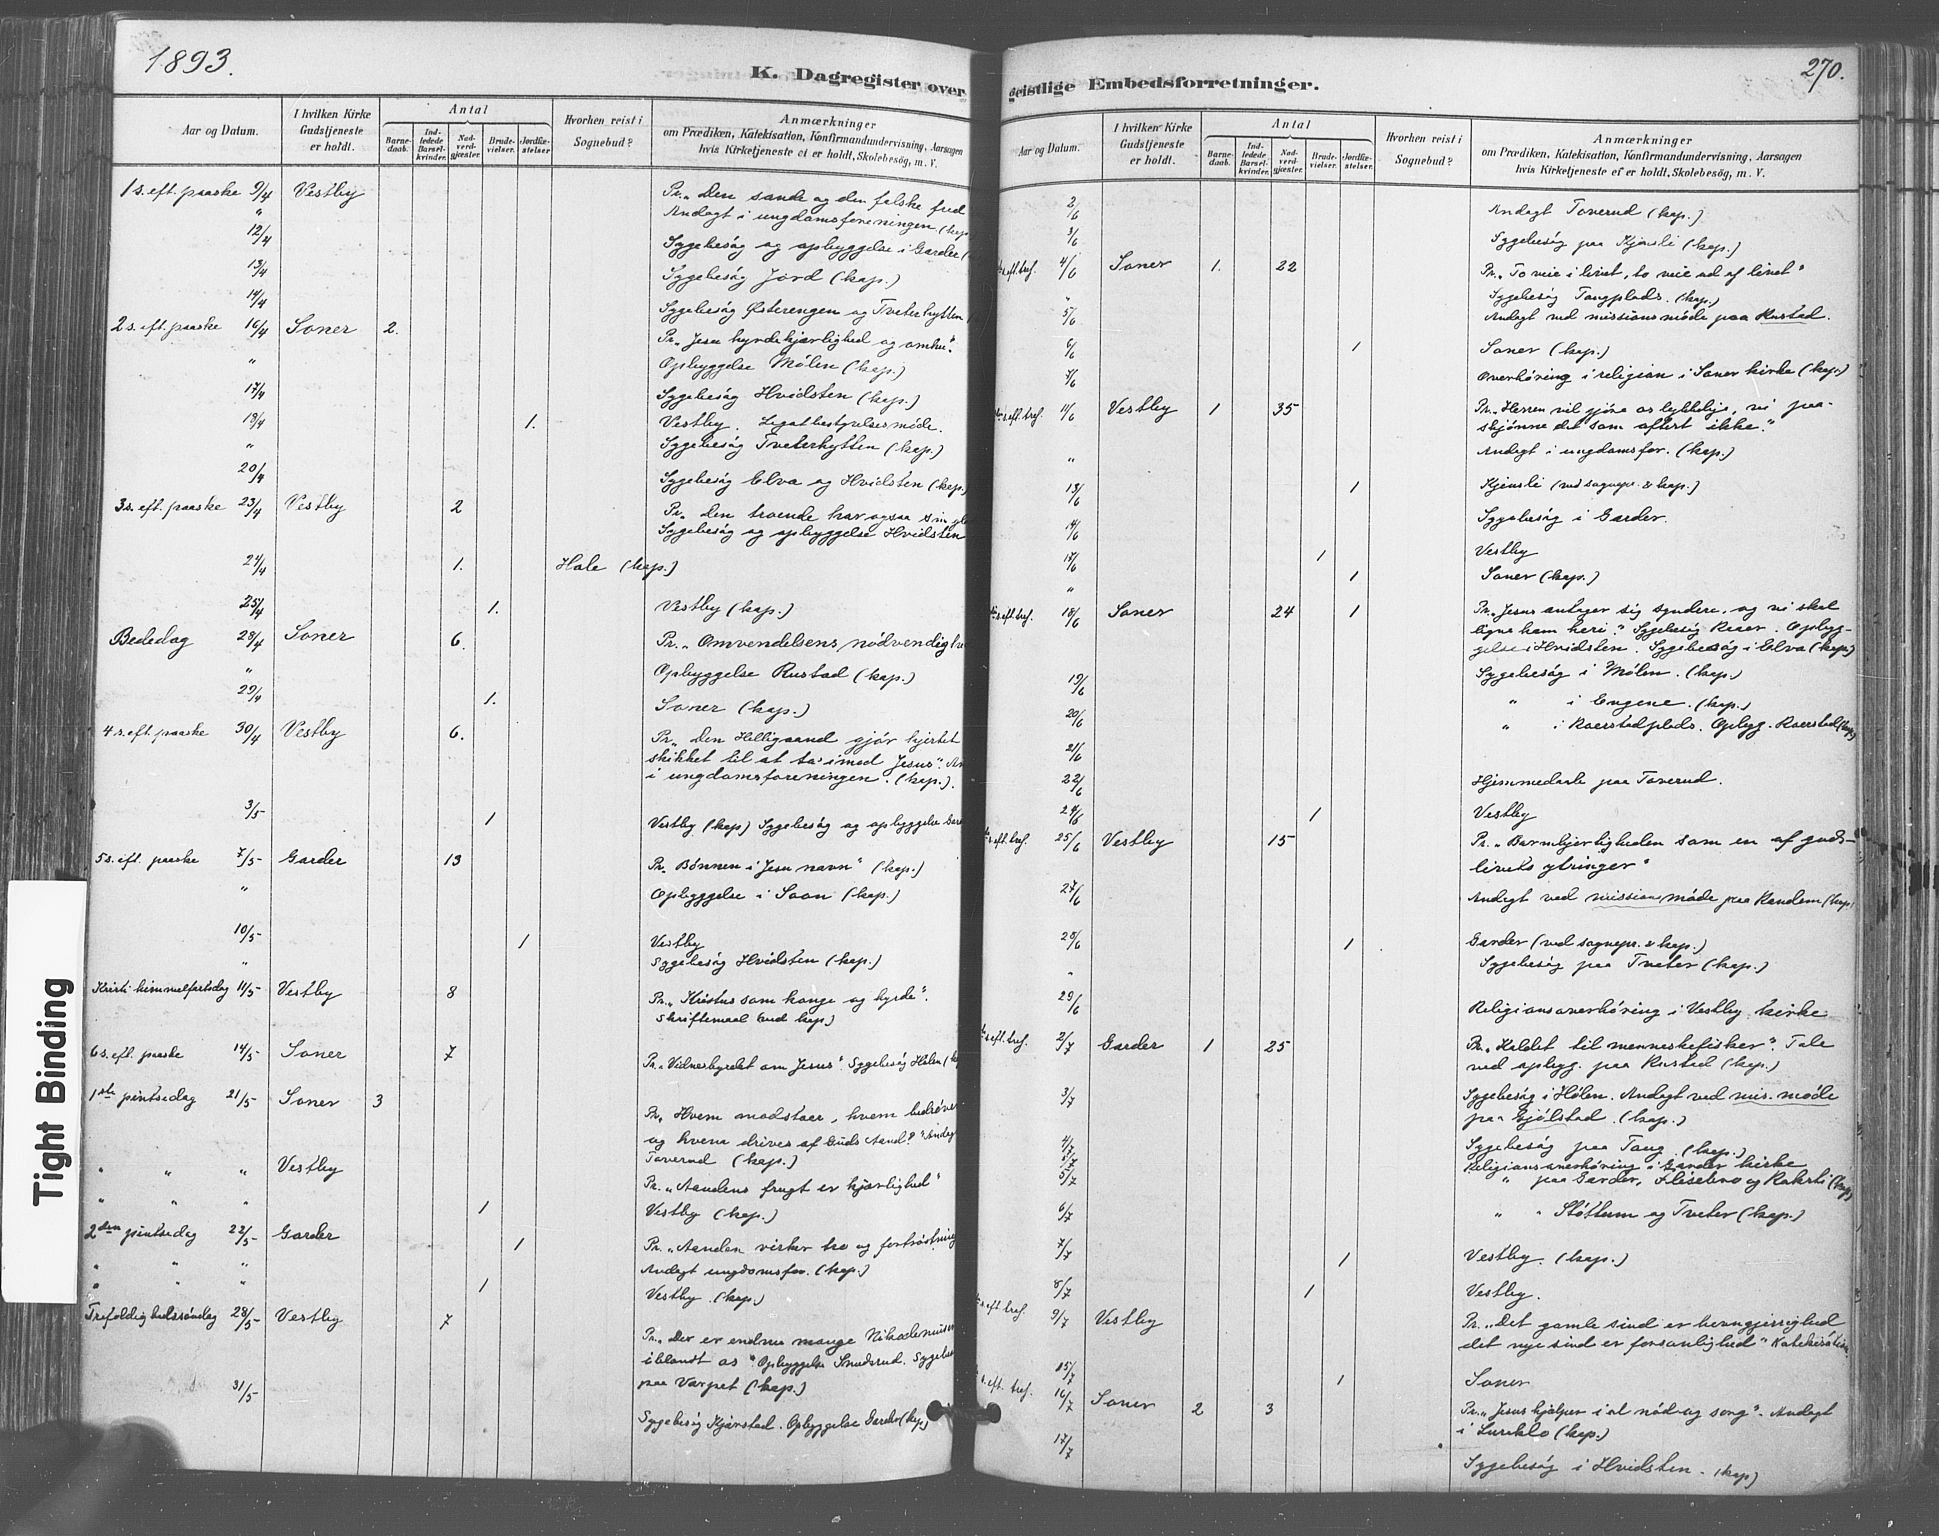 1893.
K. Dagregister over
Aar og Datum.
I hvilken Kirke Gudstjeneste er holdt.
Antal
Barnedaab.
Indledede Barselkvinder.
Nadverdgjæster.
Brudevielser.
Jordfæstelser.
Hvorhen reist i Sognebud?
Anmærkninger
om Prædiken, Katekisation, Konfirmandundervisning, Aarsagen
hvis Kirketjeneste ei er holdt, Skolebesøg, m. V.
1 s. eft. paaske 9/4 Vestby Pr. „Den sande og den falske fred
" Andagt i ungdomsforeningen (kap
12/4 Sygebesøg og opbyggelse i Garder (
13/4 Sygebesøg Jord (kap.)
14/4 Sygebesøg Østerengen og Tveterhytten
2 s. eft. paaske 16/4 Soner 2. Pr. „Jesu hyrdekjærlighed og omhu".
" Opbyggelse Mølen (kap.)
17/4 Sygebesøg Hvidsten (kap.)
19/4 1. Vestby. Legatbestyrelsesmøde.
" Sygebesøg Tveterhytten (kap.)
20/4 Sygebesøg Elva og Hvidsten (kap.)
3 s. eft. paaske 23/4 Vestby 2 Pr. „Den troende har ogsaa sin
Sygebesøg og opbyggelse Hvidsten
24/4 1. Hale (kap.)
25/4 1. Vestby (kap.)
Bededag 28/4 Soner 6. Pr. „Omvendelsens nødvendig
" Opbyggelse Rustad (kap.)
29/4 1. Soner (kap.)
4 s. eft. paaske 30/4 Vestby 6. Pr. „Den Helligaand gjør hjertet
skikket til at ta' imod Jesus". An
i ungdomsforeningen. (kap.).
3/5 1 Vestby (kap) Sygebesøg og opbyggelse Gard
5 s. eft. paaske 7/5 Garder 13 Pr. „Bønnen i Jesu navn" (kap.)
" Opbyggelse i Soon (kap.)
10/5 1 Vestby
" Sygebesøg Hvidsten (kap.)
Kristi himmelfartsdag 11/5 Vestby 8 Pr. „Kristus som konge og hyrde".
Skriftemaal (ved kap)
6 s. eft. paaske 14/5 Soner 7 Pr. „Vidnesbyrdet om Jesus" Sygebesøg Hølen (
1ste pintsedag 21/5 Soner 3 Pr. „Hvem modstaar, hvem bedrøver
og hvem drives af Guds Aand?" Andag
Toverud (kap.)
" " " Vestby Pr. „Aandens frugt er kjærlighed"
" " " 1 Vestby (kap.)
2den pintsedag 22/5 Garder 1 Pr. „Aanden virker tro og fortrøstning
" " " Andagt ungdomsfor. (kap.)
" " " 1 Vestby (kap.)
Trefoldighedssøndag 28/5 Vestby 7 Pr. „Der er endnu mange Nikodemuser
iblandt os" Opbyggelse Snudsrud. Sygebes
paa Varpet (kap.)
31/5 Sygebesøg Kjærstad. Opbyggelse Garder (kap.)
270.
geistlige Embedsforretninger.
Aar og Datum.
I hvilken Kirke Gudstjeneste er holdt.
Antal
Barnedaab.
Indledede Barselkvinder.
Nadverdgjæster.
Brudevielser.
Jordfæstelser.
Hvorhen reist i Sognebud?
Anmærkninger
om Prædiken, Katekisation, Konfirmandundervisning, Aarsagen
hvis Kirketjeneste ei er holdt, Skolebesøg, m. V.
2/6 Andagt Toverud (kap.)
3/6 Sygebesøg paa Kjensli (kap.)
s. eft. tref. 4/6 Soner 1. 22 Pr. „To veie i livet, to veie ud af livet"
" Sygebesøg Tangplads. (kap.)
5/6 Andagt ved missionsmøde paa Rustad.
6/6 1 Soner (kap.)
7/6 Overhøring i religion i Soner kirke (kap.)
s. eft. tref. 11/6 Vestby 1 35 Pr. „Herren vil gjøre os lykkelig, vi paa-
skjønne det som oftest ikke."
" Andagt i ungdomsfor. (kap.)
13/6 1 Kjensli (ved sognepr. & kap.)
14/6 Sygebesøg i Garder.
17/6 1 Vestby
" 1 Soner (kap.)
s. eft. tref. 18/6 Soner 24 1 Pr. „Jesus antager sig syndere, og vi skal
ligne ham heri." Sygebesøg Raaer. Opbyg-
gelse i Hvidsten. Sygebesøg i Elva (kap.)
19/6 Sygebesøg i Mølen. (kap.)
20/6 " i Engene. (kap.)
21/6 " i Roerstadplads. Opbyg. Roerstad (kap.)
22/6 Hjemmedaab paa Toverud.
24/6 1 Vestby
s. eft. tref. 25/6 Vestby 15 Pr. „Barmhjertigheden som en af guds-
livets ytringer"
27/6 Andagt ved missionsmøde paa Randem (kap)
28/6 1 Garder (ved sognepr. & kap.)
" Sygebesøg paa Tveter (kap.)
29/6 Religionsoverhøring i Vestby kirke
s. eft. tref. 2/7 Garder 1 25 Pr. „Kaldet til menneskefisker". Tale
ved opbyg. paa Rustad (kap.)
3/7 Sygebesøg i Hølen. Andagt ved mis. møde
paa Gjølstad. (kap.)
4/7 Sygebesøg paa Tang. (kap.)
5/7 Religionsoverhøring i Garder kirke
5/7 " paa Garder, (kap)
6/7 " " Støttum og Tveter (kap.)
7/7 1 Vestby. (kap.)
8/7 1 Vestby.
s. eft. tref. 9/7 Vestby Pr. „Det gamle sind er hevngjerrighed
det nye sind er forsonlighed" Katekisation
15/7 1 Soner
s. eft. tref. 16/7 Soner 2 3 Pr. „Jesus hjælper i al nød og sorg". Andagt
i (kap.)
17/7 Sygebesøg i Hvidsten. (kap)
Tight Binding